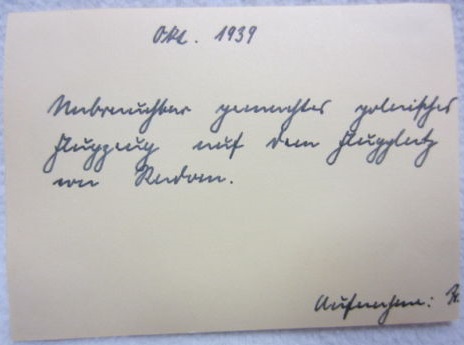 Okt. 1939
Unbrauchbar gemachtes polnisches
Flugzeug auf dem Flugplatz
von Radom.
Aufnahme: